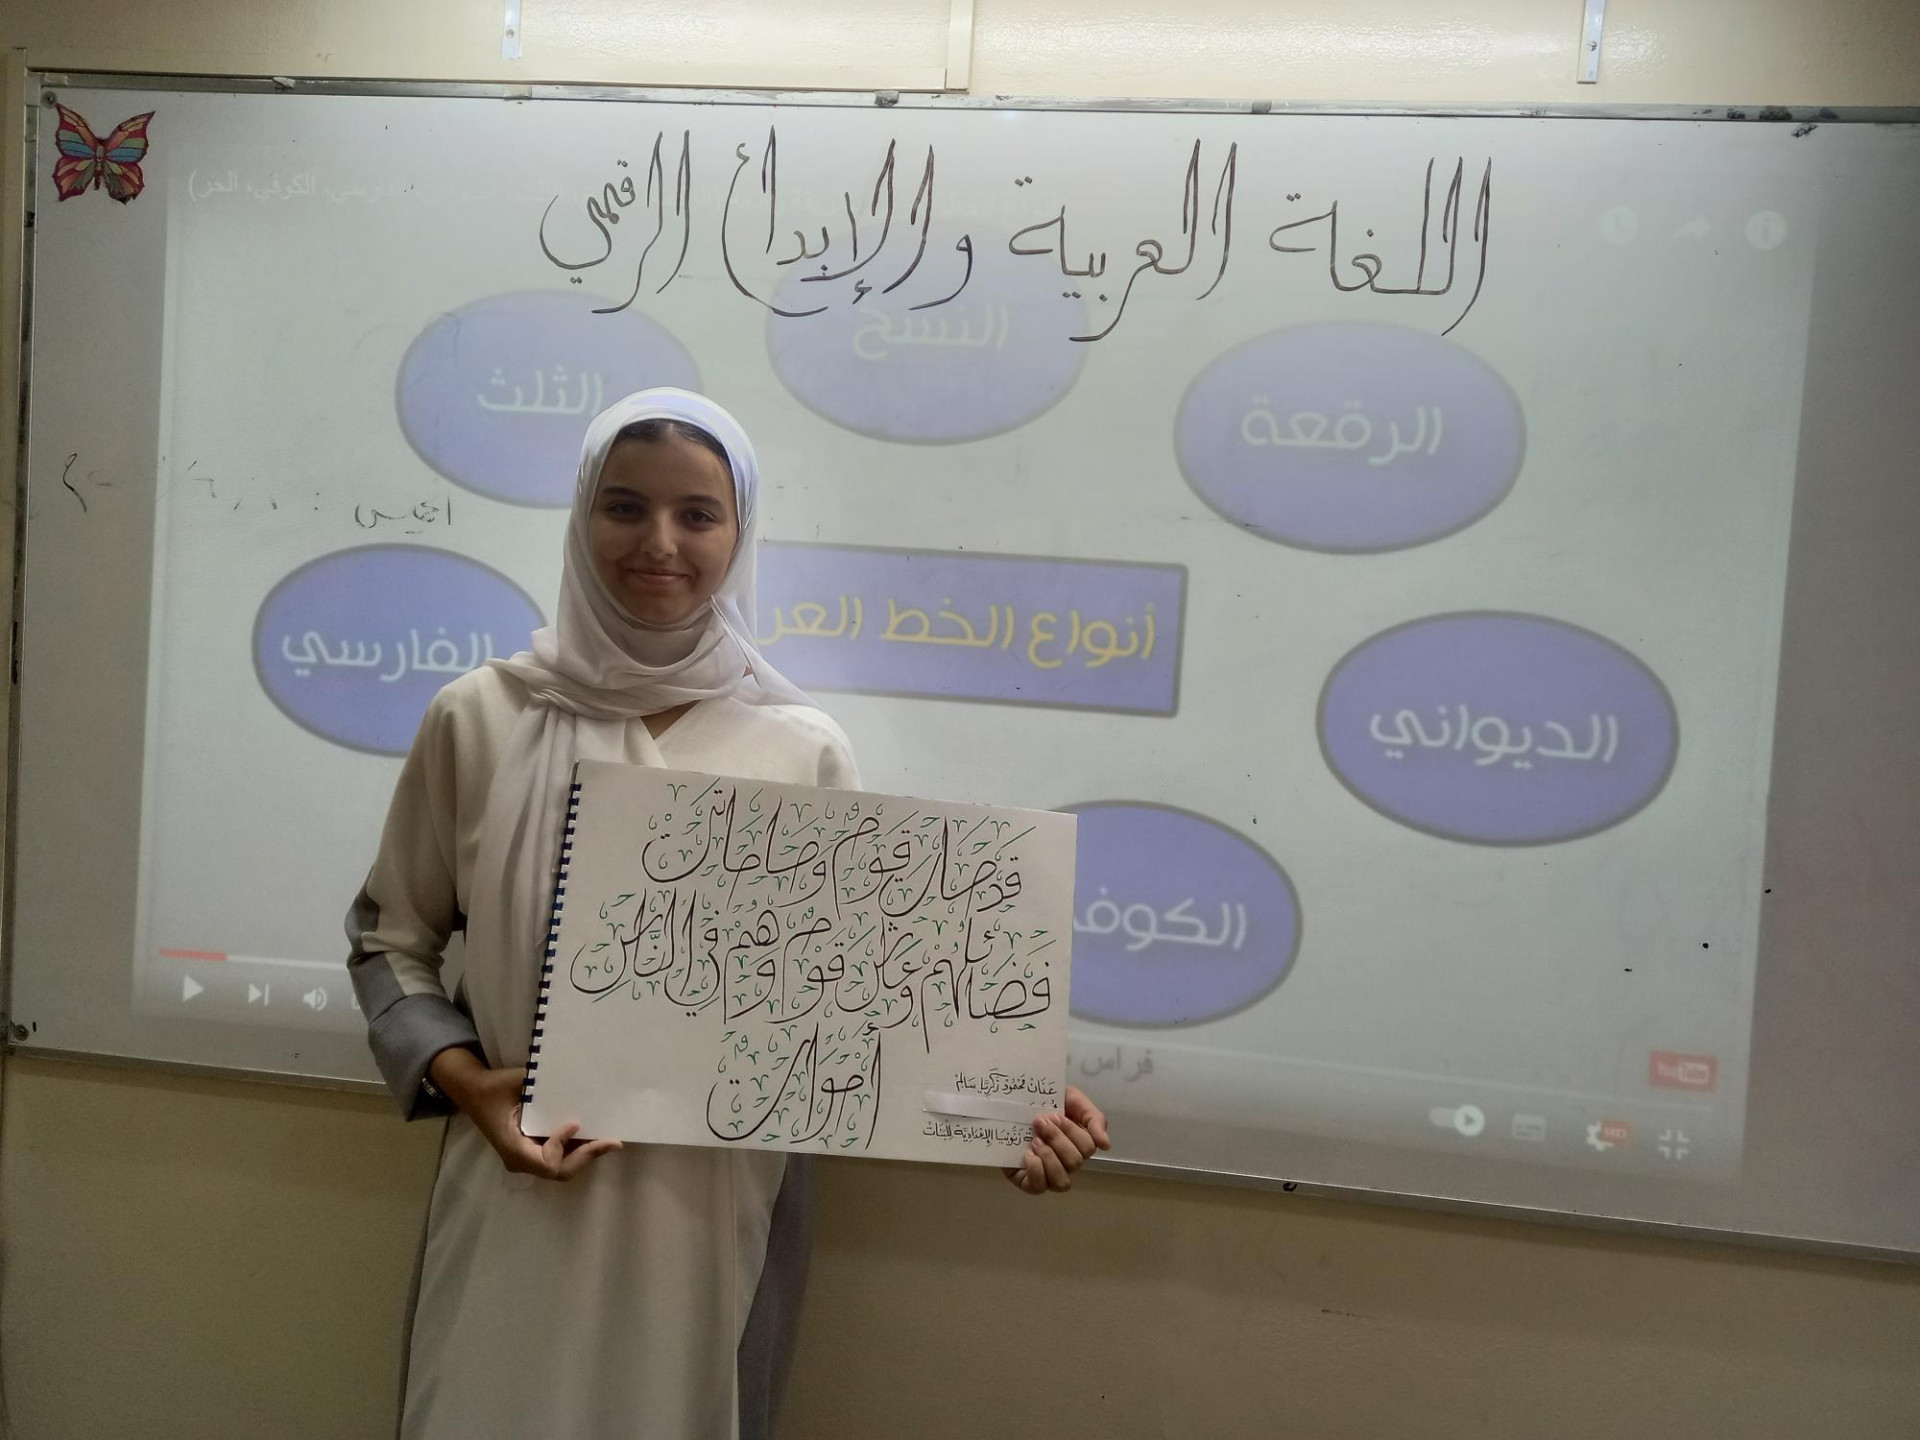 اللغة العربية والإبداع الرقمي
الفارسي، الكوفي، الحر)
النسخ
الثلث
الرقعة
الخميس
أنواع الخط العر
الفارسي
الديواني
الكوفي
قَدْ صَارَ قَوْمٌ وَمَا مَاتَتْ
فَضَائِلُهُمْ وَعَاشَ قَوْمٌ وَهُمْ فِي النَّاسِ
أَمْوَاتُ
محمود زكريا سالم
زنوبيا الإعدادية للبنات
فراس
YouTube